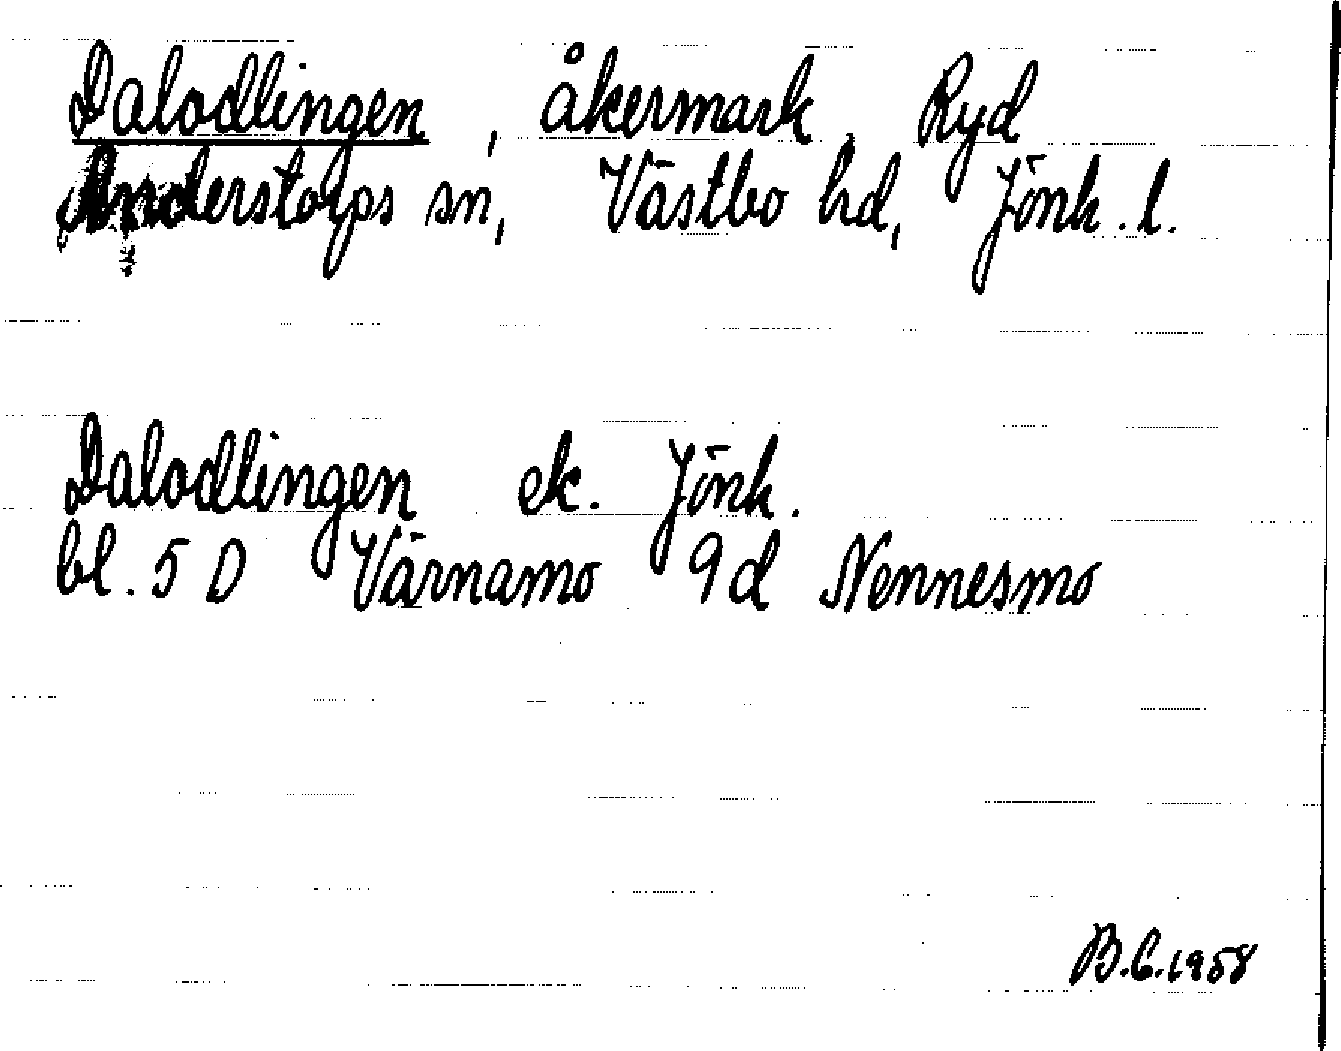 Dalodlingen, åkermark, Ryd
Anderstorps sn, Västbo hd, Jönk. l.
Dalodlingen ek. Jönk.
bl. 5 D Värnamo 9d Nennesmo
B.C.1958